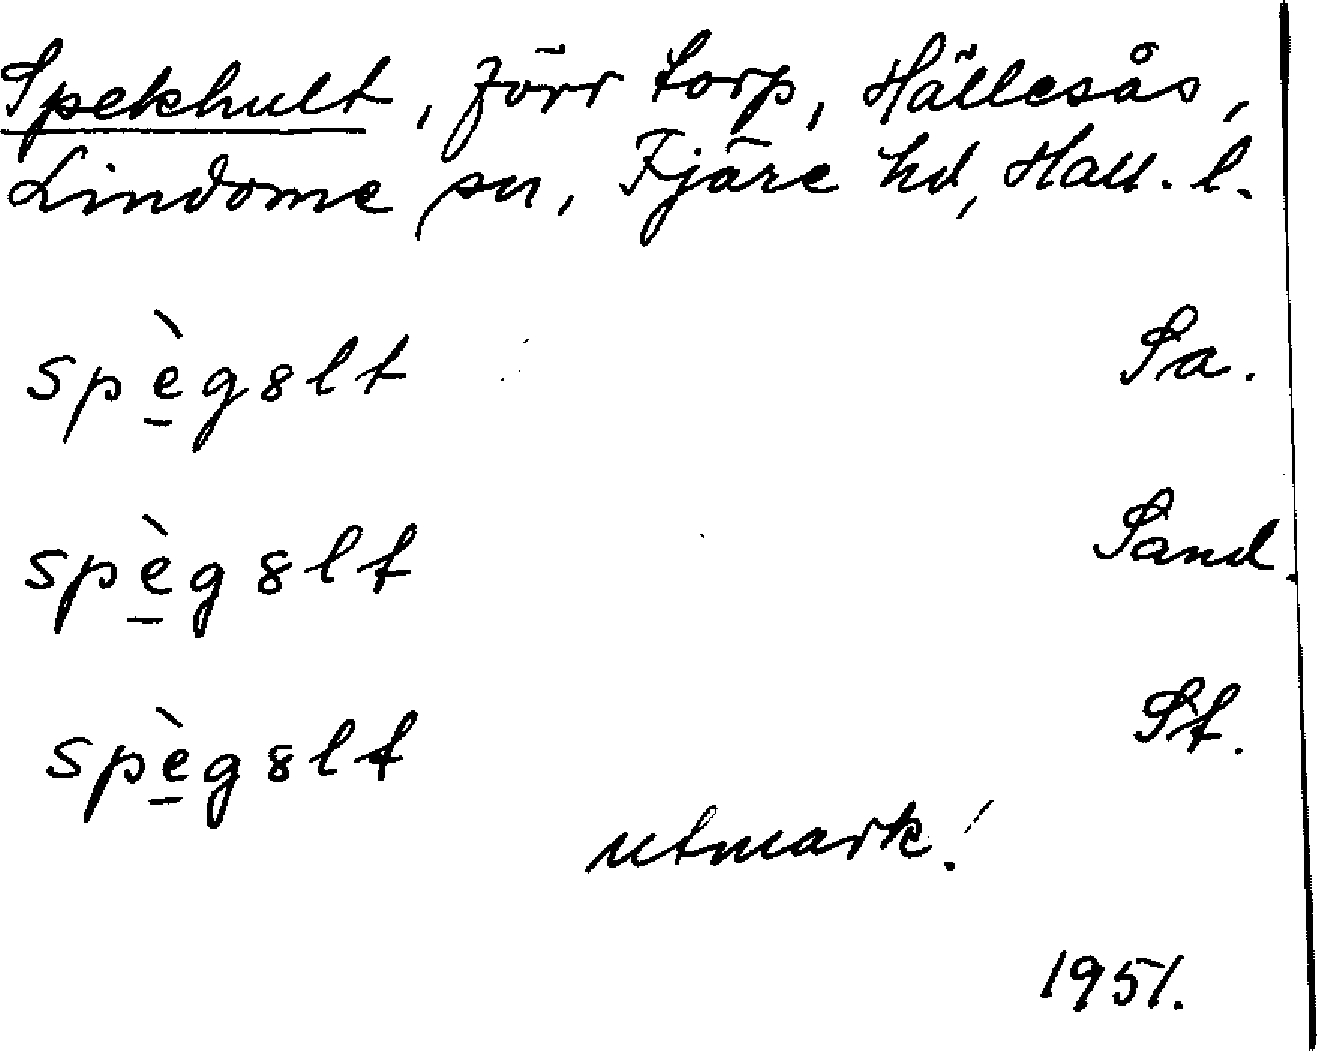 Spekhult, förr torp, Hällesås,
Lindome sn, Fjäre hd, Hall. l.
spè̱gȣlt Sa.
spè̱gȣlt Sand.
spè̱gȣlt St.
utmark!
1951.